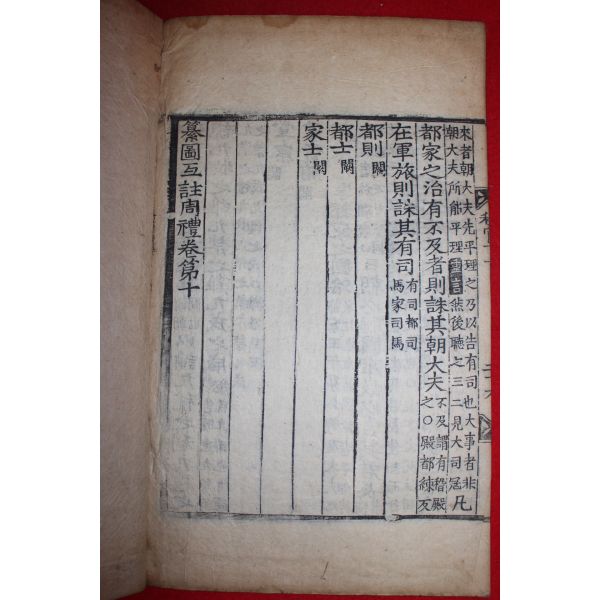 來者朝大夫先平理之乃以告有司也大事者非
朝大夫所能平理 然後聽之三二見大司冦 凡
都家之治有不及者則誅其朝大夫 不及謂有稽殿
之〇殿都練反
在軍旅則誅其有司 有司都司
馬家司馬
都則 闕
都士 闕
家士 闕
纂圖互註周禮卷第十